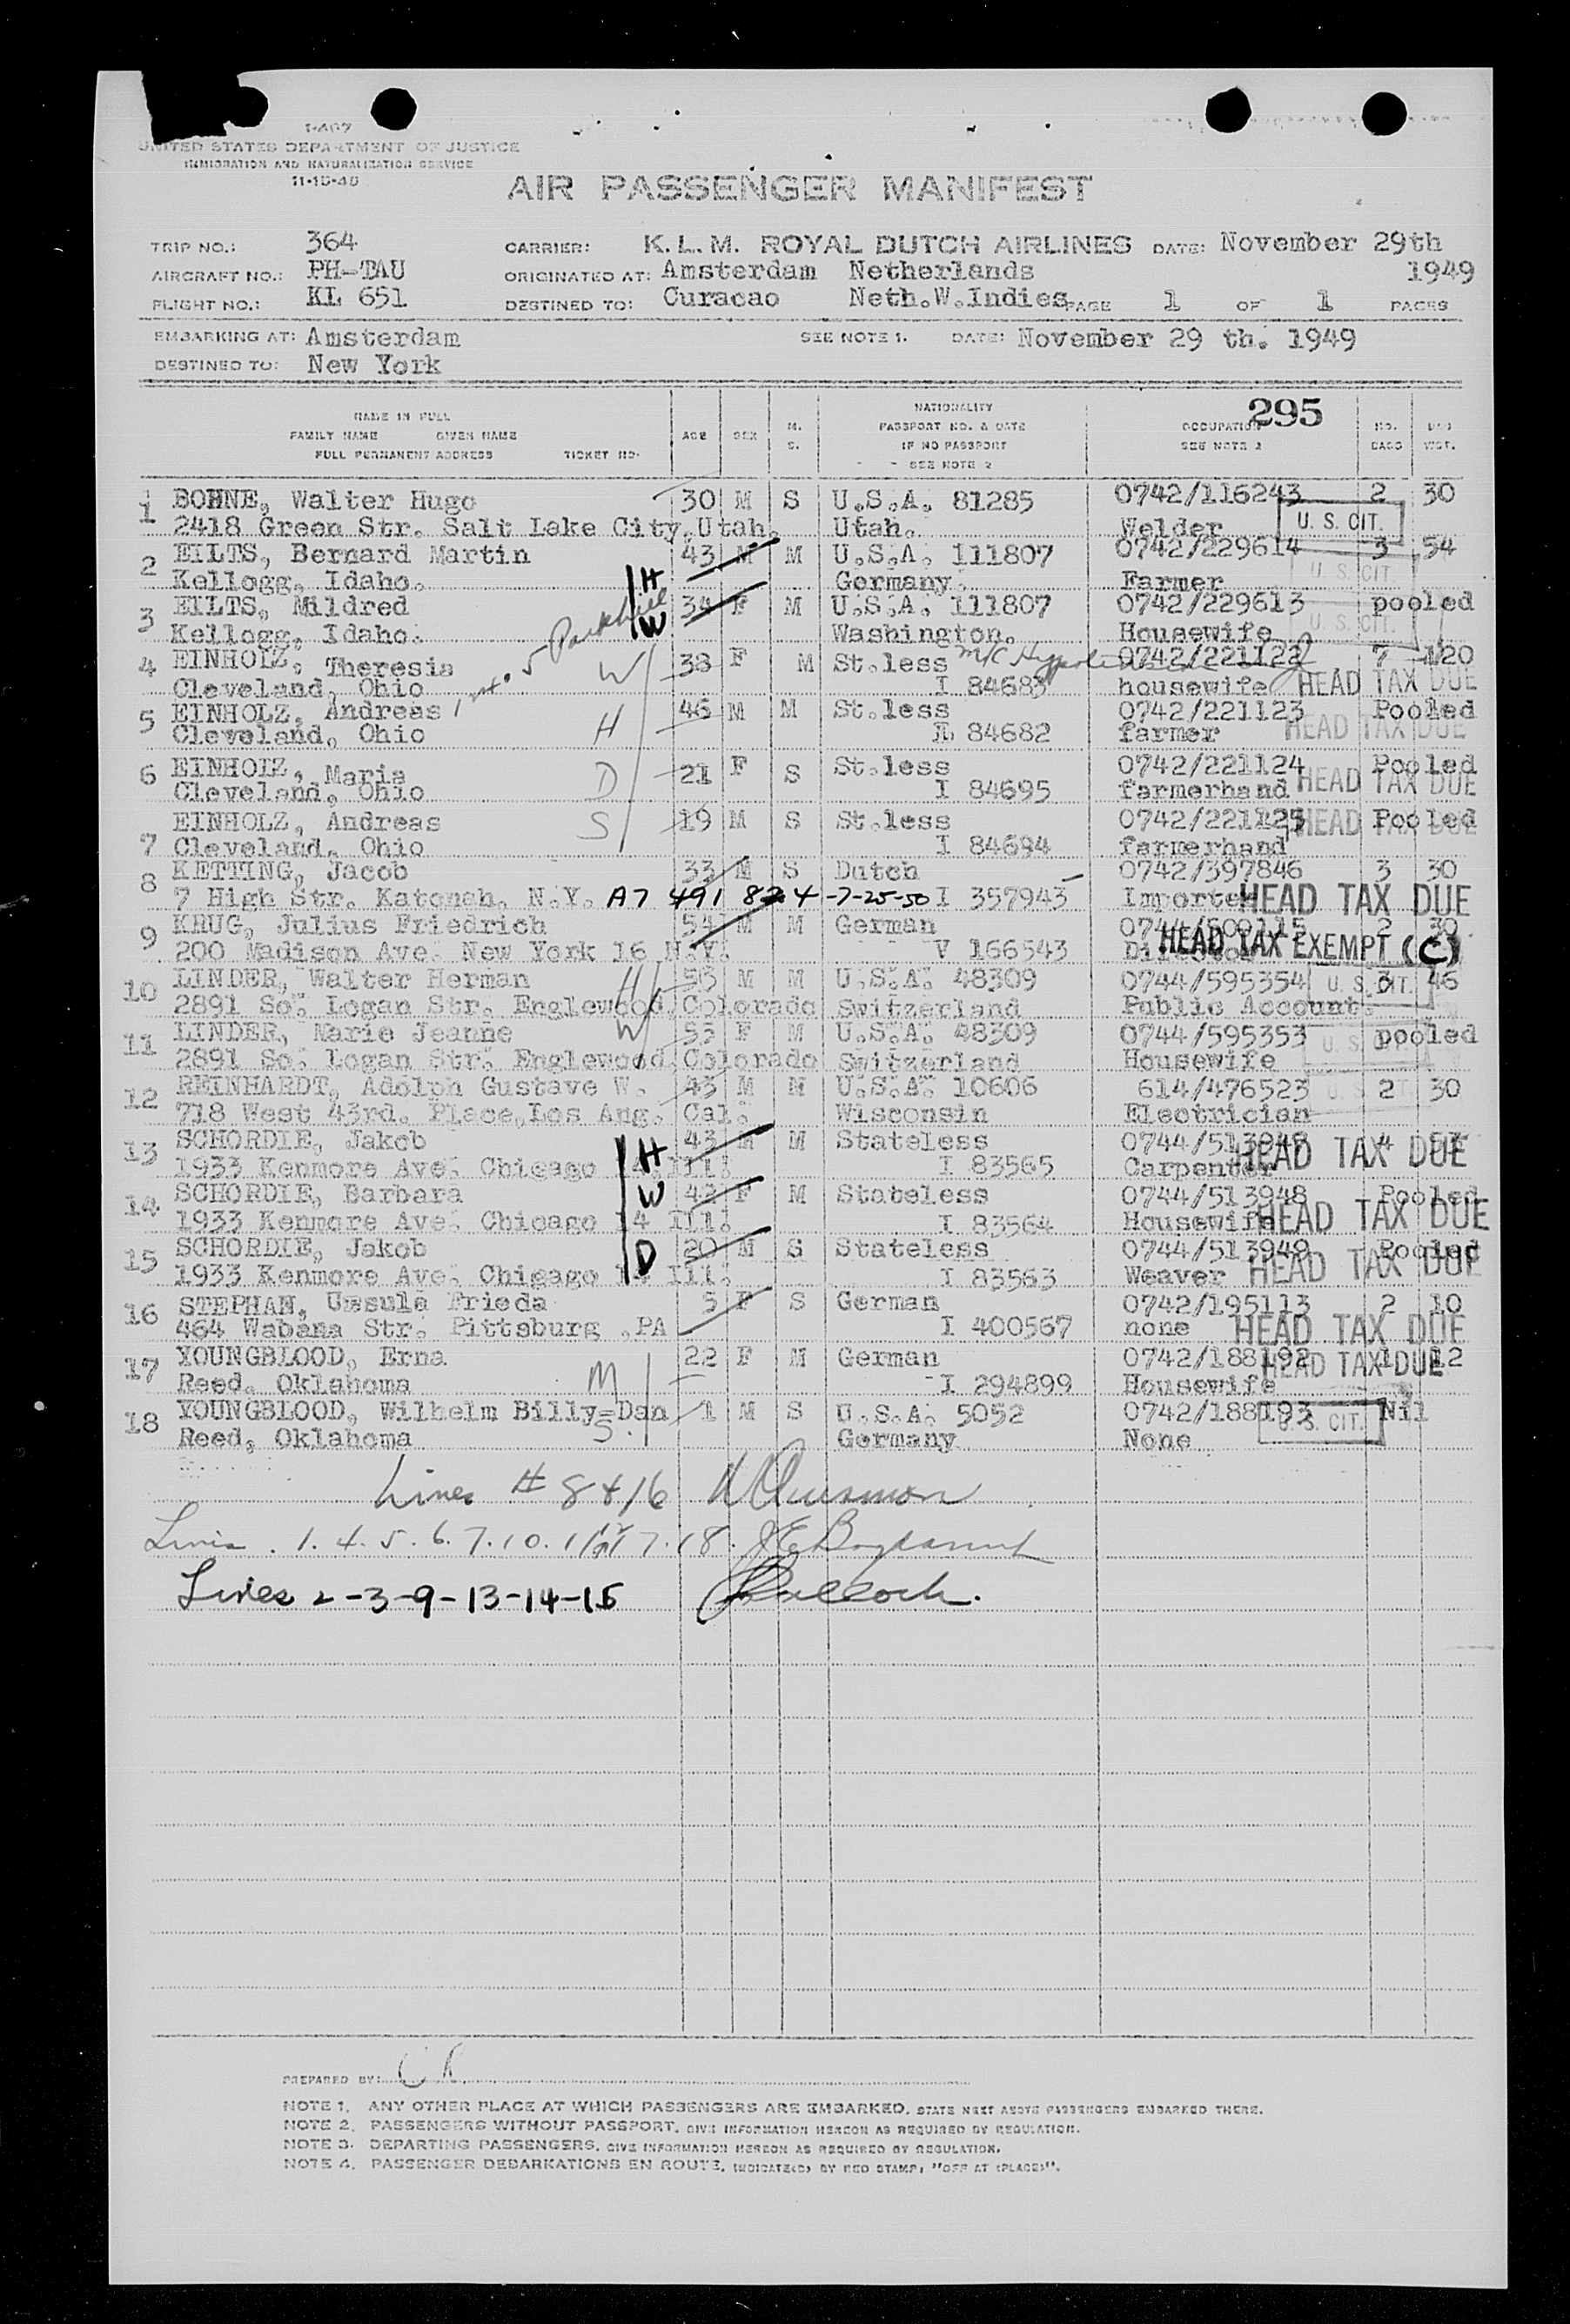 I-467
UNITED STATES DEPARTMENT OF JUSTICE
IMMIGRATION AND NATURALIZATION SERVICE
11-15-45
AIR PASSENGER MANIFEST
TRIP NO.: 364 CARRIER: K.L.M. ROYAL DUTCH AIRLINES DATE: November 29th
AIRCRAFT NO.: PH-TAU ORIGINATED AT: Amsterdam Netherlands 1949
FLIGHT NO.: KL 651 DESTINED TO: Curacao Neth.W.Indies PAGE 1 OF 1 PAGES
EMBARKING AT: Amsterdam SEE NOTE 1. DATE: November 29 th. 1949
DESTINED TO: New York
295
NAME IN FULL NATIONALITY
FAMILY NAME GIVEN NAME AGE SEX M. S. PASSPORT NO. & DATE OCCUPATION NO. BAGG WGT.
FULL PERMANENT ADDRESS TICKET NO. IF NO PASSPORT SEE NOTE 2
SEE NOTE 2
1 BOHNE, Walter Hugo 30 M S U.S.A. 81285 0742/116243 2 30
2418 Green Str. Salt Lake City.Utah. Utah. Welder U. S. CIT.
2 EILTS, Bernard Martin 43 M M U.S.A. 111807 0742/229614 3 54
Kellogg, Idaho. H Germany. Farmer U. S. CIT
3 EILTS, Mildred 34 F M U.S.A. 111807 0742/229613 pooled
Kellogg, Idaho. W Washington. Housewife U. S. CIT.
4 EINHOLZ, Theresia W 38 F M St.less 0742/221122 7 120
Cleveland, Ohio I 84683 housewife HEAD TAX DUE
5 EINHOLZ, Andreas H 46 M M St.less 0742/221123 Pooled
Cleveland, Ohio I 84682 farmer HEAD TAX DUE
6 EINHOLZ, Maria D 21 F S St.less 0742/221124 Pooled
Cleveland, Ohio I 84695 farmerhand HEAD TAX DUE
EINHOLZ, Andreas S 19 M S St.less 0742/221125 Pooled HEAD TAX DUE
7 Cleveland, Ohio I 84694 farmerhand
8 KETTING, Jacob 33 M S Dutch 0742/397846 3 30
7 High Str. Katonah, N.Y. A7 491 824 -7-25-50 I 357943 Importer HEAD TAX DUE
9 KRUG, Julius Friedrich 54 M M German 2 30
200 Madison Ave. New York 16 N.Y. V 166543 HEAD TAX EXEMPT (C)
10 LINDER, Walter Herman H 53 M M U.S.A. 48309 0744/595354 3 46
2891 So. Logan Str. Englewood Colorado Switzerland Public Account. U. S. CIT.
11 LINDER, Marie Jeanne W 53 F M U.S.A. 48309 0744/595353 pooled
2891 So. Logan Str. Englewood Colorado Switzerland Housewife
12 REINHARDT, Adolph Gustave W. 43 M M U.S.A. 10606 614/476523 2 30
718 West 43rd. Place,Los Ang. Cal. Wisconsin Electrician
13 SCHORDIE, Jakob H 43 M M Stateless 4
1933 Kenmore Ave. Chicago 14 Ill. I 83565 Carpenter HEAD TAX DUE
14 SCHORDIE, Barbara W 42 F M Stateless 0744/513948 Pooled
1933 Kenmore Ave. Chicago 14 Ill. I 83564 Housewife HEAD TAX DUE
15 SCHORDIE, Jakob D 20 M S Stateless 0744/513949 Pooled
1933 Kenmore Ave. Chicago 14 Ill. I 83563 Weaver HEAD TAX DUE
16 STEPHAN, Ursula Frieda 5 F S German 0742/195113 2 10
464 Wabana Str. Pittsburg .PA I 400567 none HEAD TAX DUE
17 YOUNGBLOOD, Erna 22 F M German 0742/188192 1 12
Reed, Oklahoma M I 294899 Housewife HEAD TAX DUE
18 YOUNGBLOOD, Wilhelm Billy-Dan 1 M S U.S.A. 5052 0742/188193 Nil
Reed, Oklahoma S. Germany None U. S. CIT.
Lines # 8 + 16
Lines . 1. 4. 5. 6. 7. 10. 11 17. 18.
Lines 2-3-9-13-14-15
PREPARED BY:
NOTE 1. ANY OTHER PLACE AT WHICH PASSENGERS ARE EMBARKED, STATE NEXT ABOVE PASSENGERS EMBARKED THERE.
NOTE 2. PASSENGERS WITHOUT PASSPORT, GIVE INFORMATION HEREON AS REQUIRED BY REGULATION.
NOTE 3. DEPARTING PASSENGERS, GIVE INFORMATION HEREON AS REQUIRED BY REGULATION.
NOTE 4. PASSENGER DEBARKATIONS EN ROUTE, INDICATE(D) BY RED STAMP: "OFF AT (PLACE)".